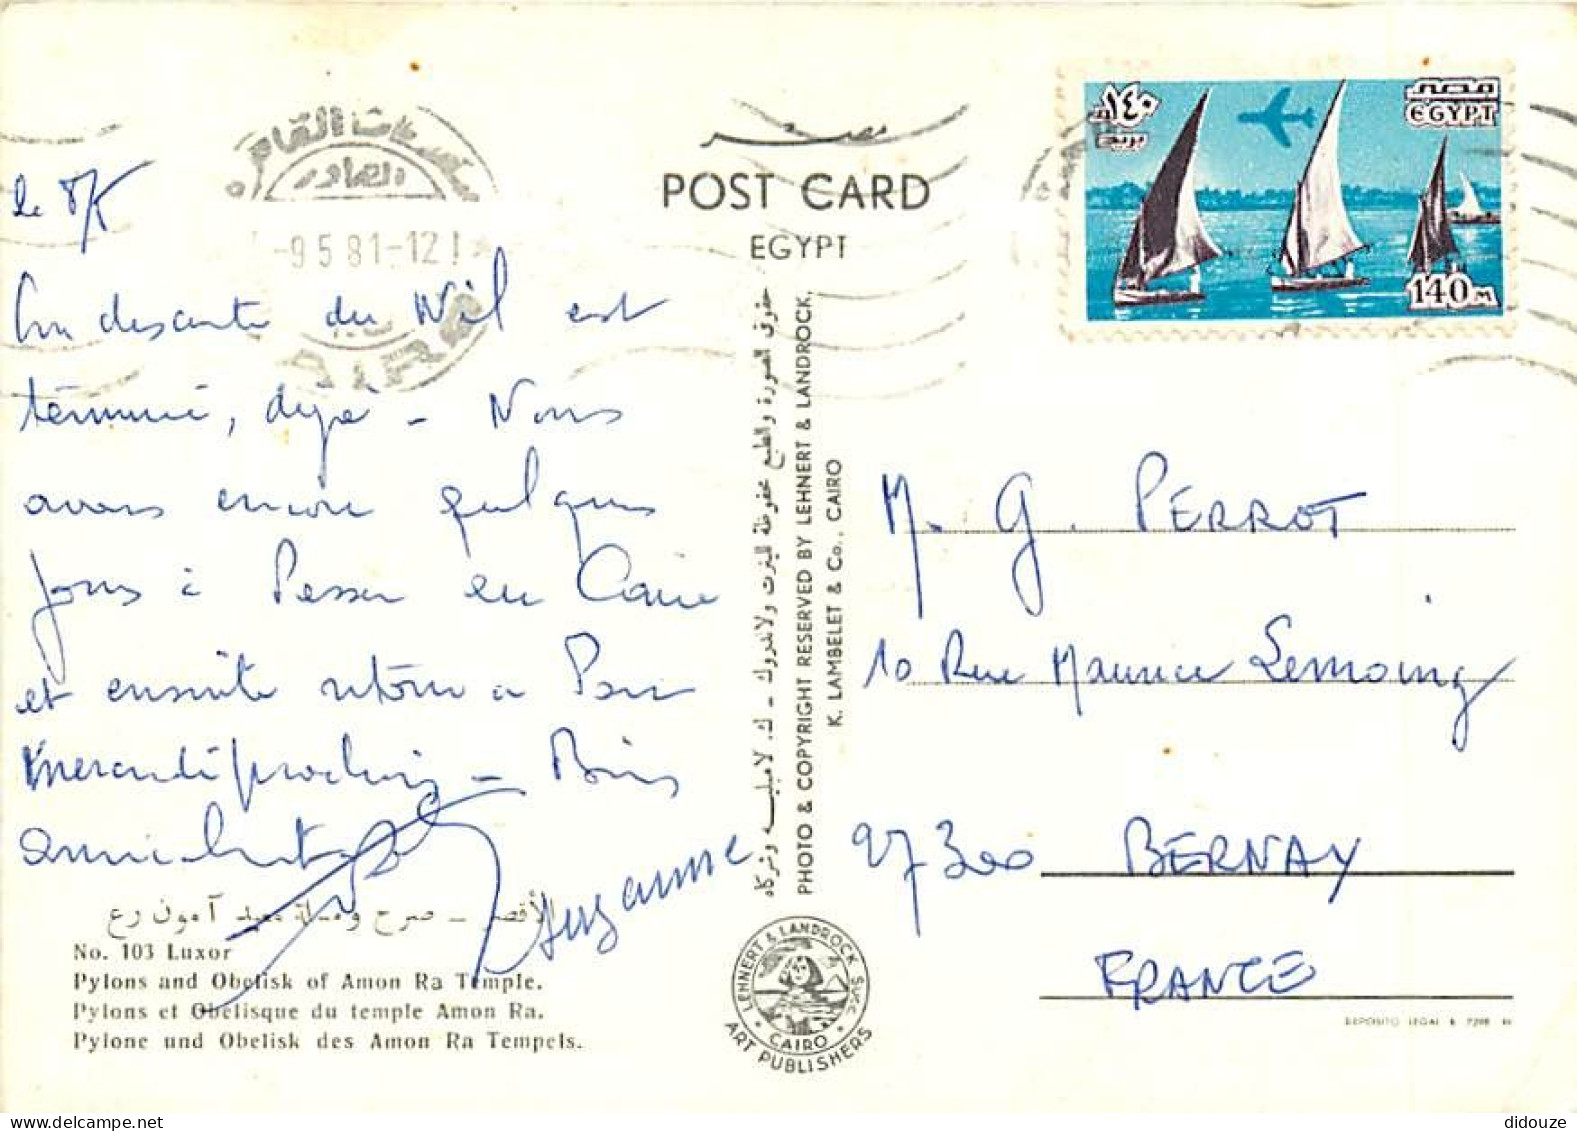 le
9.5.81-12
CAIRO
La descente du Nil est
terminé, déjà - Nous
avons encore quelques
jours à Passer au Caire
et ensuite retour a Paris
Mercredi prochain - Bien
amicalement
Suzanne
الأقصر – صرح ومسلة معبد آمون رع
No. 103 Luxor
Pylons and Obelisk of Amon Ra Temple.
Pylons et Obelisque du temple Amon Ra.
Pylone und Obelisk des Amon Ra Tempels.
مصر
POST CARD
EGYPT
حقوق الصورة والطبع محفوظة للينرت ولاندروك - ك. لامبليه وشركاه
PHOTO & COPYRIGHT RESERVED BY LEHNERT & LANDROCK,
K. LAMBELET & Co., CAIRO
LEHNERT & LANDROCK SUCC
CAIRO
ART PUBLISHERS
١٤٠
بريد
مصر
EGYPT
140 M
M. G. PERROT
10 Rue Maurice Lemoing
27300 BERNAY
FRANCE
DEPOSITO LEGAL B. 7298
didouze